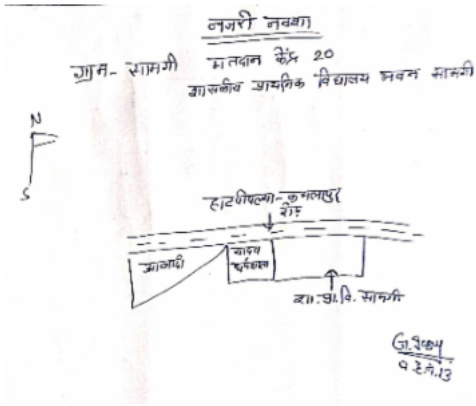 नजरी नक्शा
ग्राम- सामगी मतदान केंद्र 20
शासकीय प्राथमिक विद्यालय भवन सामगी
N
S
हाटपीपल्या-कमलापुर
रोड
आबादी
यादव
धर्मशाला
शा.प्रा.वि. सामगी